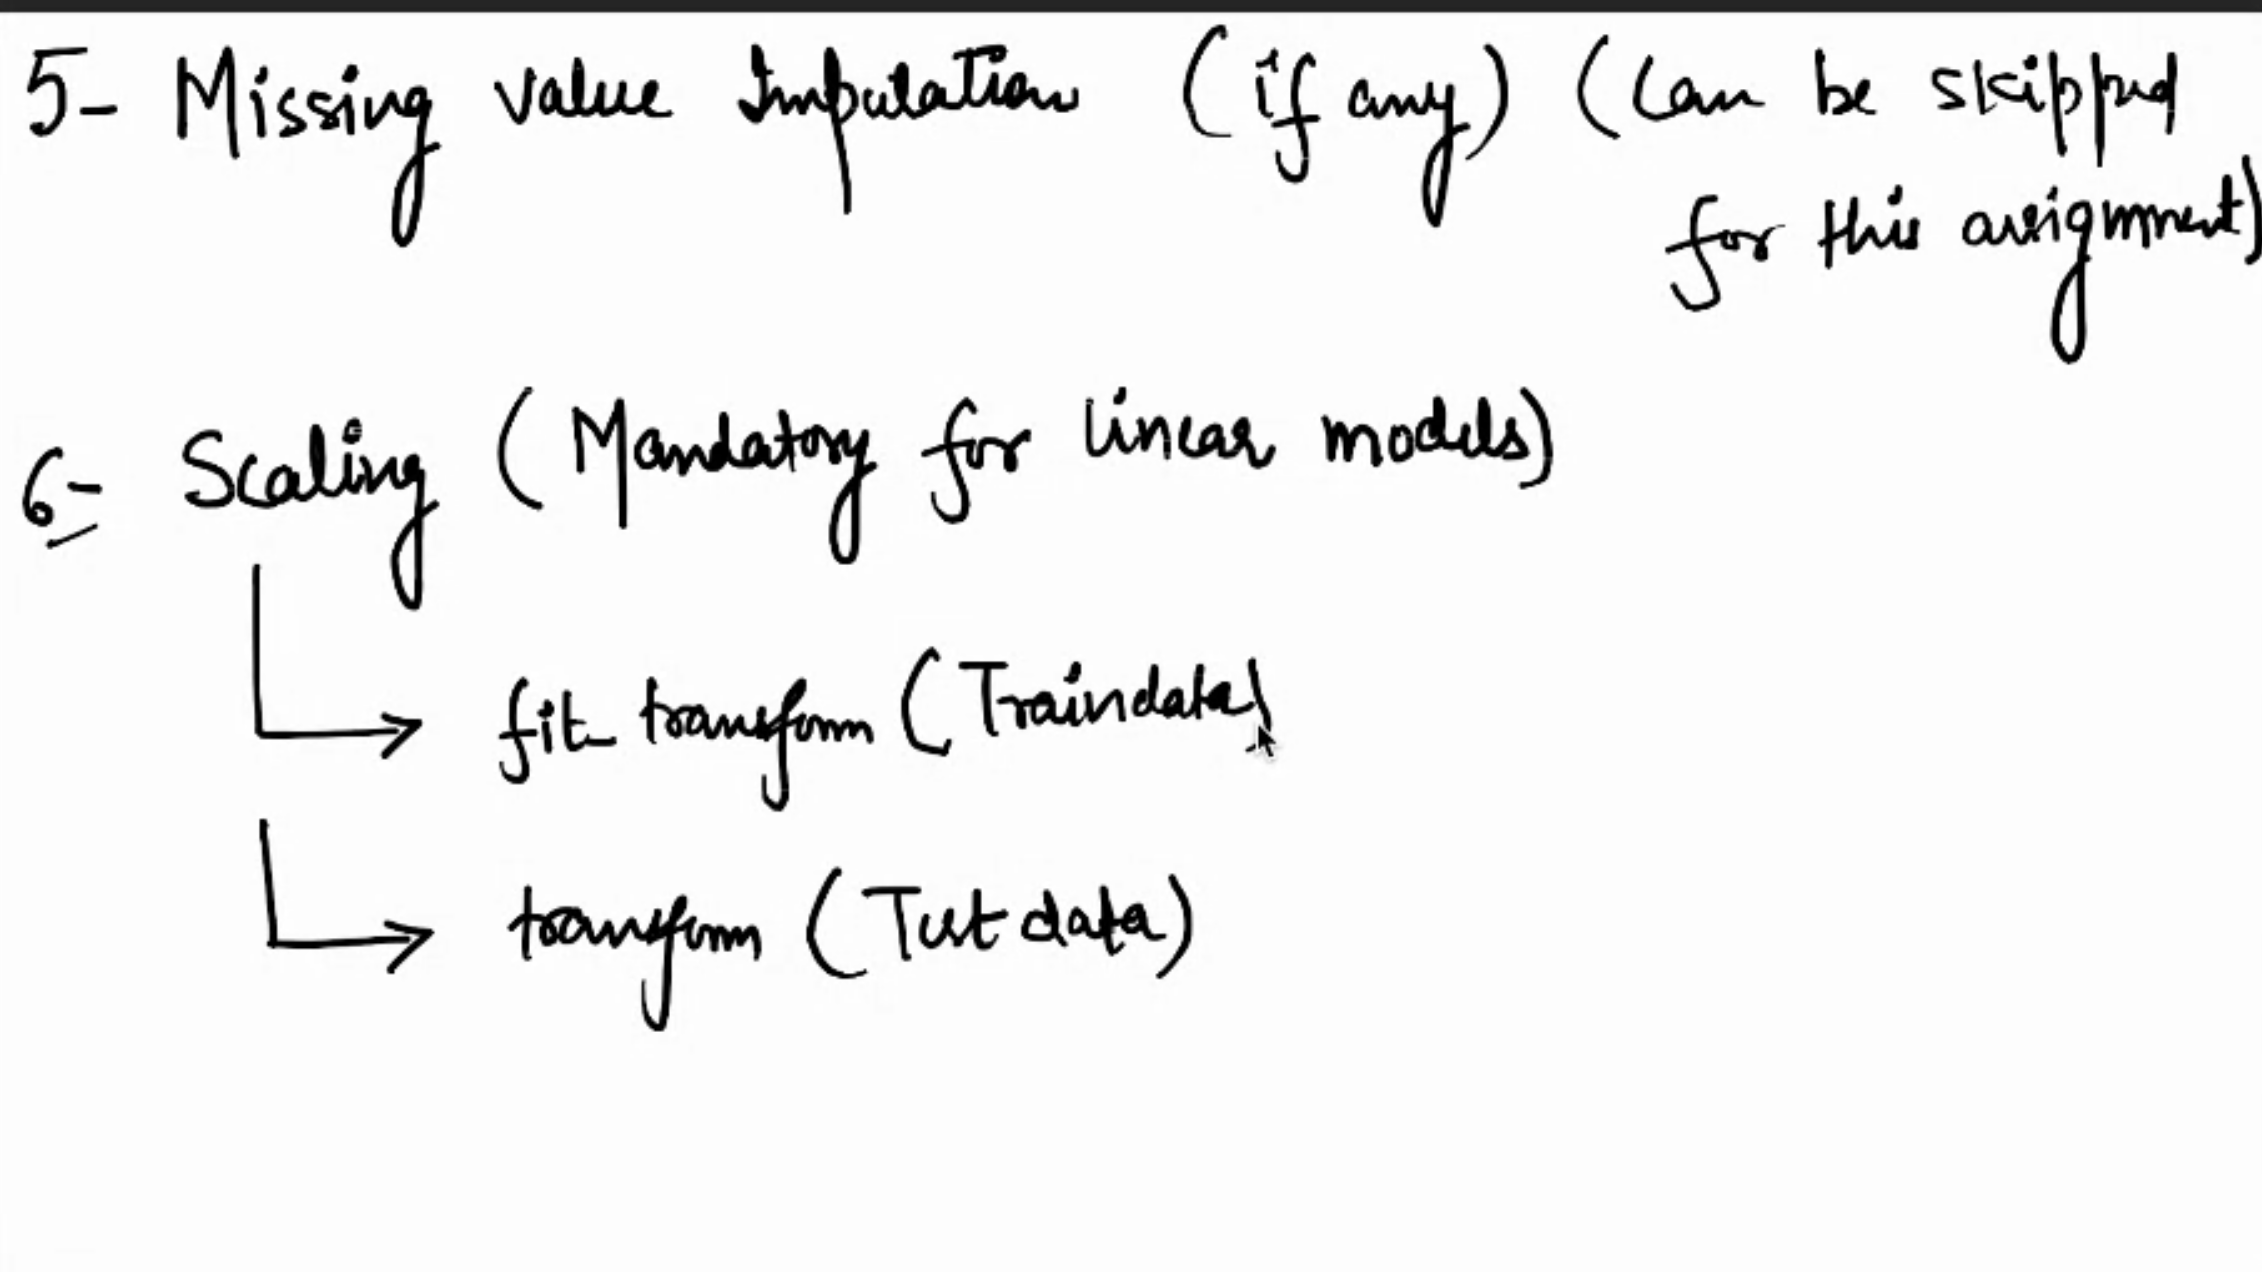 5- Missing value Imputation (if any) (Can be skipped
for this assignment)
6- Scaling (Mandatory for linear models)
→ fit_transform (Traindata)
→ transform (Test data)